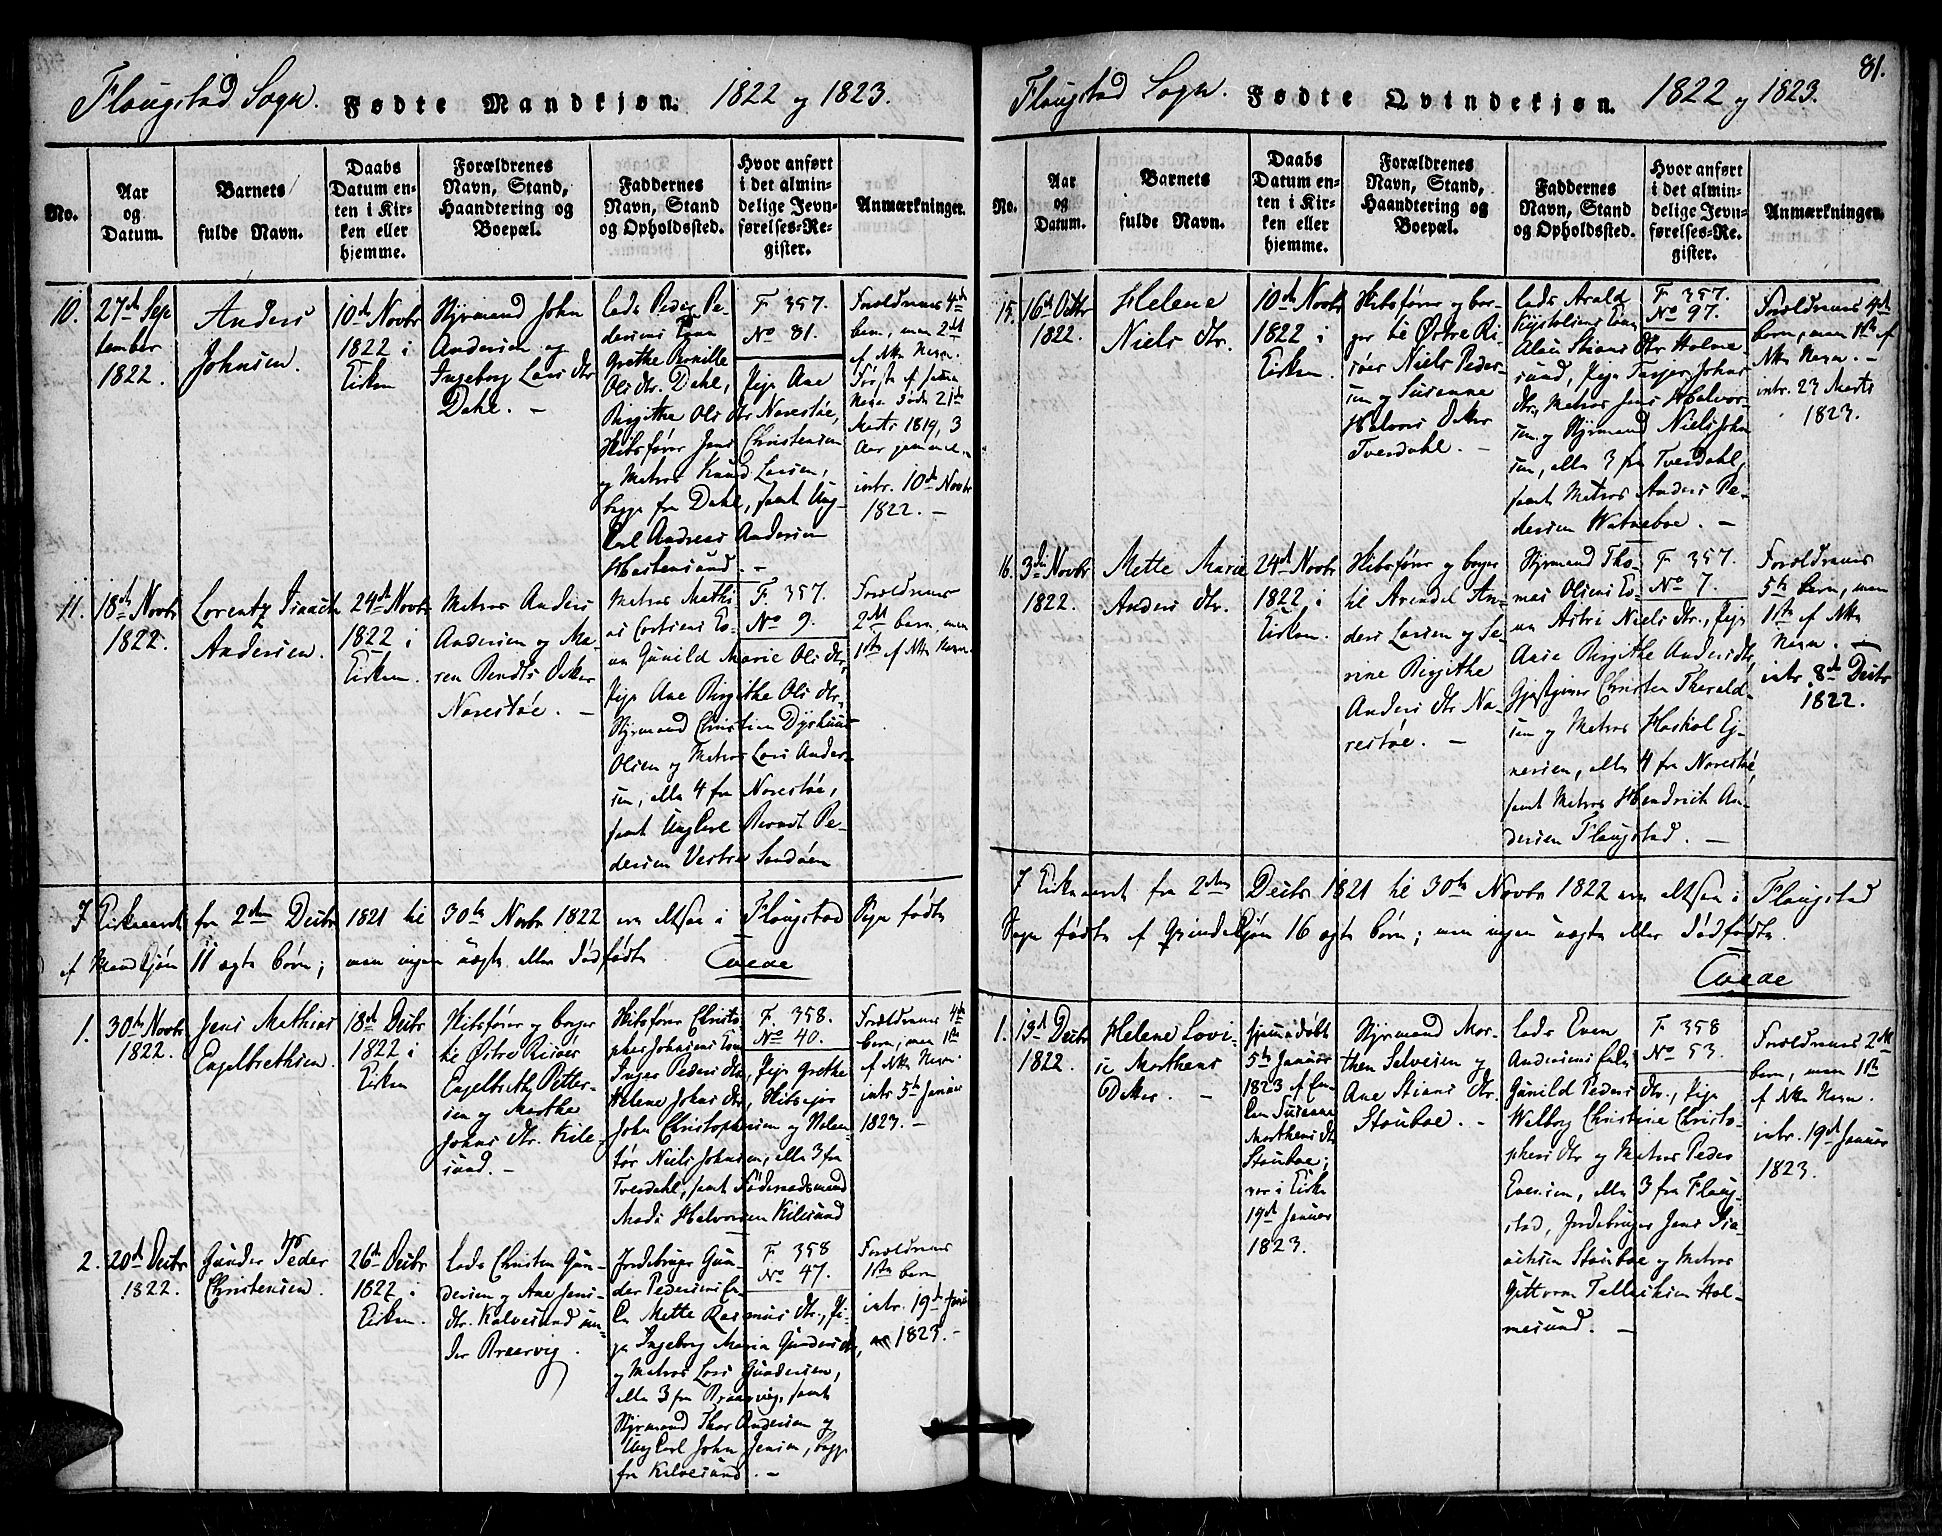 Flaugstad Sogn. Fødte Mandkjøn. 1822 og 1823.
No.
Aar
og
Datum.
Barnets
fulde Navn.
Daabs
Datum en-
ten i Kir-
ken eller
hjemme.
Forældrenes
Navn, Stand,
Haandtering og
Boepæl.
Faddernes
Navn, Stand
og Opholdssted.
Hvor anført
i det almin-
delige Jevn-
førelses-Re-
gister.
Anmærkninger.
10.
27de Sep
tember
1822.
Anders
Johnsen.
10de Novbr
1822 i
Kirken
Styrmand John
Andersen og
Ingeborg Lars dtr
Dahl. —
Lods Peder Pe-
dersens Kone
Grethe Pernille
Ols dtr. Dahl, Pige Ane
Birgitha Ols dtr Narestøe,
Skibsfører Jens Christensen
og Matros Knud Larsen,
begge fra Dahl, samt Ung-
Karl Andreas Andersen
Hastensund. —
F. 357.
No 81.
Forældrenes 4de
barn, men 2det
af dette Navn.
Første af samme
Navn døde 21de
Marts 1819, 3
Aar gammel.
intr. 10de Novbr
1822. —
11.
18de Novbr
1822.
Lorentz Isaach
Andersen.
24de Novbr
1822 i
Kirken.
Matros Anders
Andersen og Ma-
ren Bendts Datter
Narestøe. —
Matros Mathi-
as Ko-
ne Gunild Marie Ols dtr,
Pige Ane Birgithe Ols dtr,
Styrmand Christian
Olsen og Matros Lars Ander-
sen, alle 4 fra Narestøe,
samt Ung Karl Berndt Pe-
dersen Vestre Sandøen
F. 357.
No 9.
Forældrenes
2det barn, men
1ste af dette Navn.
I Kirkeaaret fra 2den Decbr 1821 til 30te Novbr 1822 ere altsaa i Flaugstad Sogn fødte
af Mandkjøn 11 ægte børn; men ingen uægte eller dødfødte.
1.
30te Novbr
1822.
Jens Mathias
Engelbrethsen.
18de Decbr
1822 i
Kirken
Skibsfører og borger
til Østre Risøer
Engelbreth Petter-
sen og Marthe
Johns dtr. Kile-
sund. —
Skibsfører Christo-
pher Johnsens Kone
Inger Peders dtr, Pige Grethe
Helene Johns dtr, Skibseier
John Christophersen og
Niels Johnsen, alle 3 fra
Tverdahl, samt Føderaadsmand
Mads Halvorsen Kilesund
F. 358.
No 40.
Forældrenes 4de
barn, men 1ste
af dette Navn.
intr 5te Januar
1823. —
2.
20de Decbr
1822.
Gunder Peder
Christensen.
26de Decbr
1822 i
Kirken.
Lods Christen Gun-
dersen og Ane Jens-
dtr. Kalvesund un-
der Braarvig.
Jordebruger Gun-
der Pedersens En-
ke Mette Rasmus dtr, Pi-
ge Ingeborg Maria Gunders dtr,
og Matros Lars Gundersen,
alle 3 fra Braarvig, samt
Styrmand Thor Andersen og
Ung Karl John Jensen, begge
fra Kalvesund. —
F. 358
No 47.
Forældrenes
1ste barn
intr. 19de Janu
ar 1823. —
Flaugstad Sogn. Fødte Qvindekjøn. 1822 og 1823. 81.
No.
Aar
og
Datum.
Barnets
fulde Navn.
Daabs
Datum en-
ten i Kir-
ken eller
hjemme.
Forældrenes
Navn, Stand,
Haandtering og
Boepæl.
Faddernes
Navn, Stand
og Opholdssted.
Hvor anført
i det almin-
delige Jevn-
førelses-Re-
gister.
Anmærkninger.
15.
16de Octbr
1822.
Helene
Niels dtr.
10de Novbr
1822 i
Kirken.
Skibsfører og bor-
ger til Østre Ri-
søer Niels Peder-
sen og Susanne
Halvors Datter
Tverdahl. —
Lods Arald
Kone
Stians dtr Holme-
sund, Pige Johns
dtr, Matros Jens Halvor-
sen og Styrmand Niels John
sen, alle 3 fra Tverdahl,
samt Matros Anders Pe-
dersen Watneboe. —
F. 357.
No 97.
Forældrenes 4de
barn, men 1ste af
dette Navn. —
intr. 23 Marts
1823.
16.
3die Novbr
1822.
Mette Marie
Anders dtr.
24de Novbr
1822 i
Kirken.
Skibsfører og borger
til Arendal An-
ders Larsen og Se-
rine Birgithe
Anders dtr Na-
restøe. —
Styrmand Tho-
mas Olsens Ko-
ne Astri Niels dtr, Pige
Anne Birgithe Anders dtr,
Gjestgiver Christen Therald-
sen og Matros Haskol Ej-
nersen, alle 4 fra Narestøe,
samt Matros Hendrich An-
dersen Flaugstad. —
F. 357.
No 7.
Forældrenes
5te barn, men
1ste af dette
Navn. —
intr. 8de Decbr
1822.
I Kirkeaaret fra 2den Decbr 1821 til 30te Novbr 1822 ere altsaa i Flaugstad
Sogn fødte af Qvindekjøn 16 ægte børn; men ingen uægte eller dødfødte.
1.
13de Decbr
1822.
Helene Lovi-
se Morthens
Datter. —
hjemmedøbt
5te Januar
1823 af En-
ken Susanne
Morthens dtr
Stoüboe;
var i Kirke
19de Januar
1823.
Styrmand Mor-
then Salvesen og
Ane Stians dtr.
Stoüboe. —
Lods Even
Andersens
Gunild Peders dtr., Pige
Walborg Christine Christo-
phers dtr og Matros Peder
Evensen, alle 3 fra Flaug-
stad, Jordebruger Jens Isa-
achsen Stoüboe og Matros
Guttorm Tallachsen Hol-
mesund. —
F. 358
No 53.
Forældrenes 2det
barn, men 1ste
af dette Navn.
intr. 19de Januar
1823.